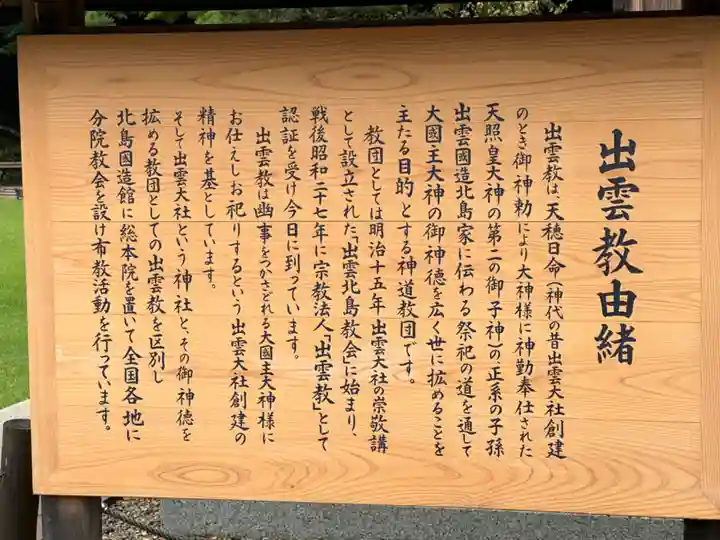 出雲教由緒
出雲教は、天穂日命(神代の昔出雲大社創建
のとき御神勅により大神様に神勤奉仕された
天照皇大神の第二の御子神)の、正系の子孫
出雲國造北島家に伝わる祭祀の道を通して
大國主大神の御神徳を広く世に拡めることを
主たる目的とする神道教団です。
教団としては明治十五年出雲大社の崇敬講
として設立された「出雲北島教会」に始まり、
戦後昭和二十七年に宗教法人「出雲教」として
認証を受け今日に到っています。
出雲教は幽事をつかさどれる大國主大神様に
お仕えしお祀りするという出雲大社創建の
精神を基としています。
そして出雲大社という神社と、その御神徳を
拡める教団としての出雲教を区別し
北島國造館に総本院を置いて全国各地に
分院教会を設け布教活動を行っています。